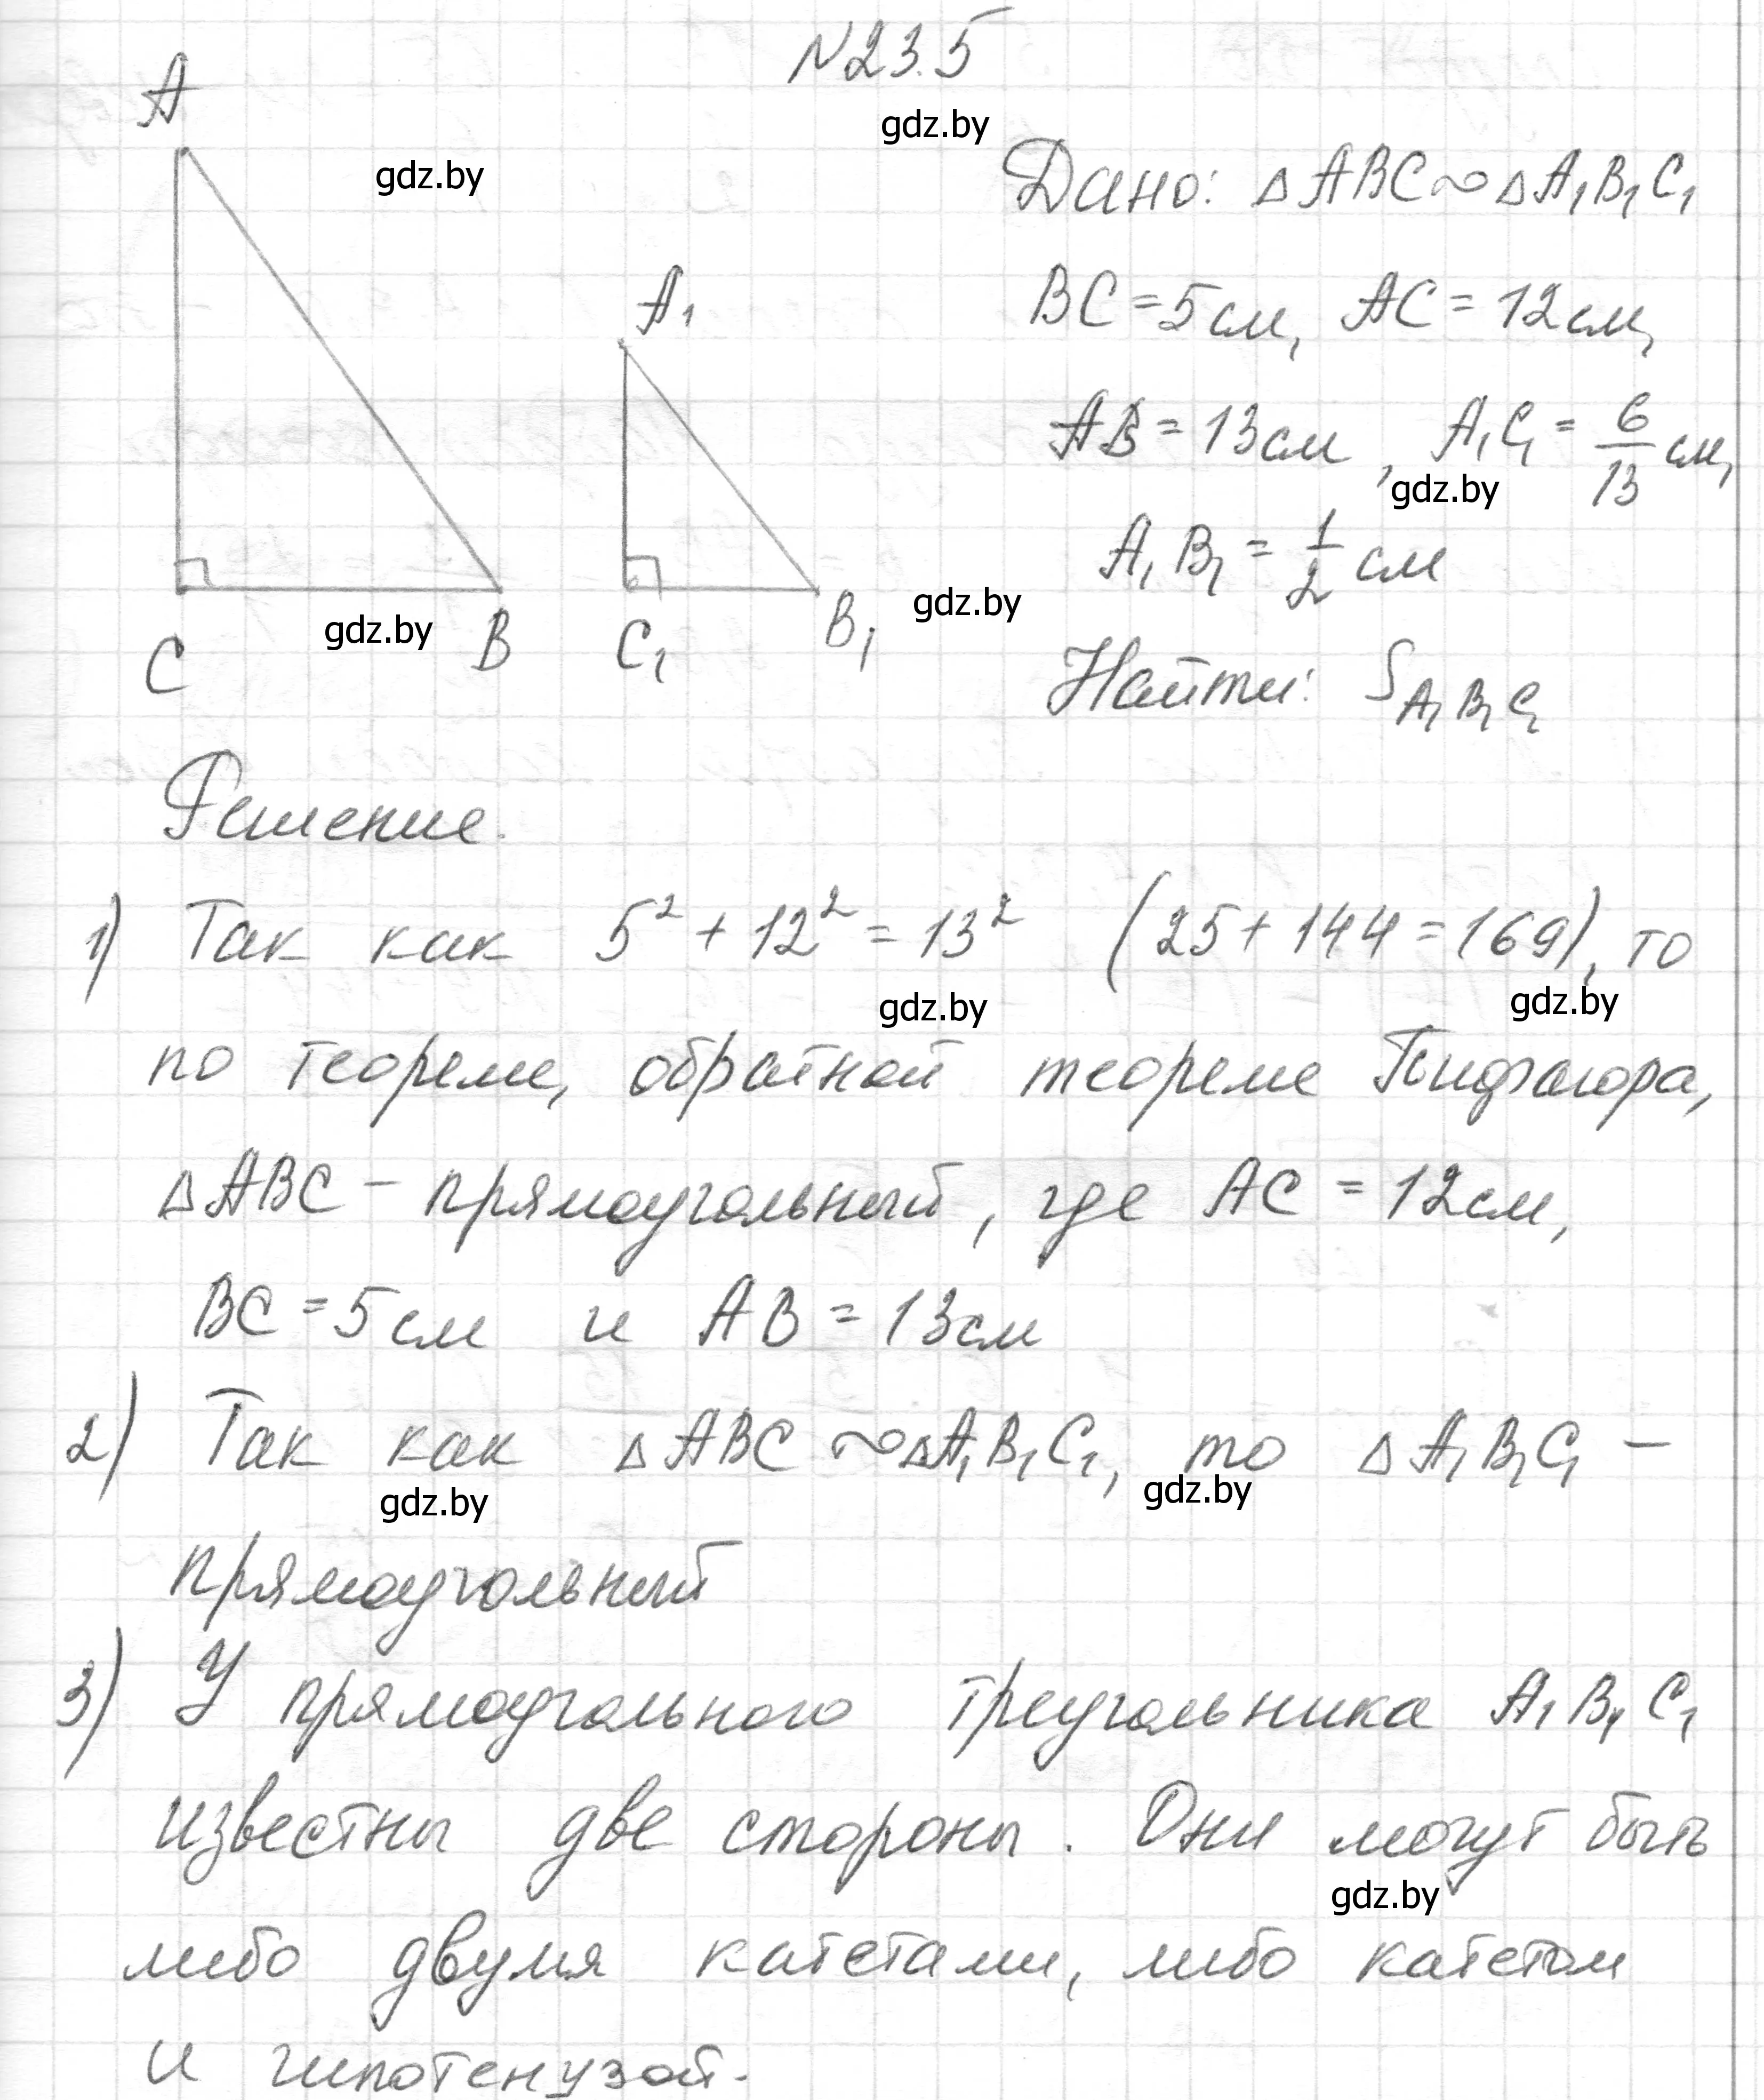 N23.5
gdz.by
A
gdz.by
Дано: △ABC∾△A₁B₁C₁
A₁
BC=5см, AC=12см,
AB=13см, A₁C₁=6/13 см,
gdz.by
A₁B₁=1/2 см
gdz.by
C gdz.by B C₁ B₁
Найти: S A₁B₁C₁
Решение.
1) Так как 5²+12²=13² (25+144=169), то
gdz.by gdz.by
по теореме, обратной теореме Пифагора,
△ABC – прямоугольный, где AC=12см,
BC=5см и AB=13см
2) Так как △ABC∾△A₁B₁C₁, то △A₁B₁C₁ –
gdz.by gdz.by
прямоугольный
3) У прямоугольного треугольника A₁B₁C₁
известны две стороны. Они могут быть
gdz.by
либо двумя катетами, либо катетом
и гипотенузой.